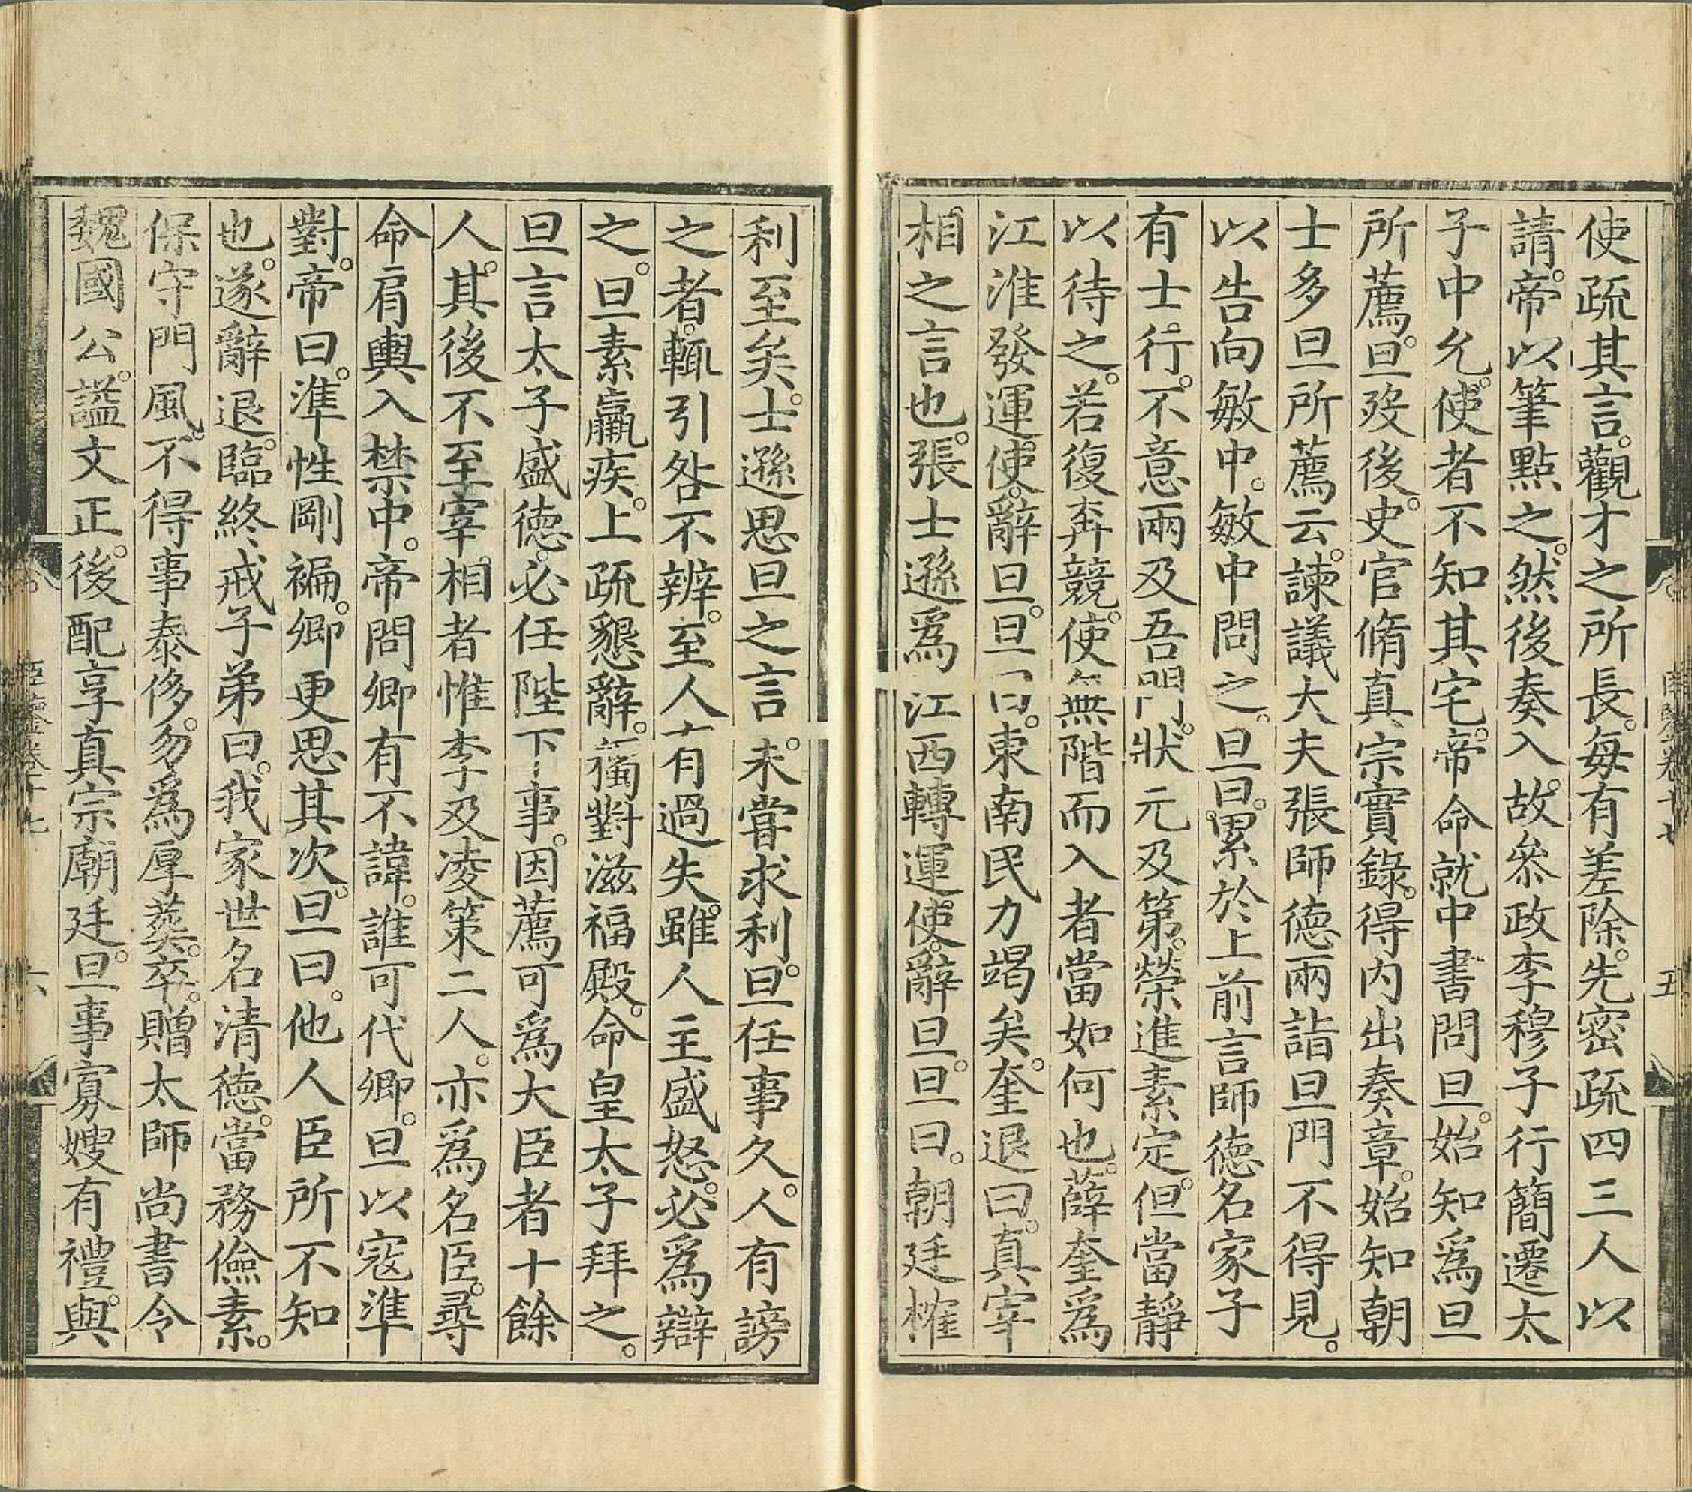 使疏其言。觀才之所長。每有差除。先密疏四三人以
請。帝以筆點之。然後奏入。故叅政李穆子行簡遷太
子中允。使者不知其宅。帝命就中書問旦。始知爲旦
所薦。旦歿後。史官脩真宗實錄。得内出奏章。始知朝
士多旦所薦云。諫議大夫張師德兩詣旦門不得見。
以告向敏中。敏中問之。旦曰。累於上前言師德名家子
有士行。不意兩及吾門。狀元及第。榮進素定。但當靜
以待之。若復奔競。使無階而入者當如何也。薛奎爲
江淮發運使。辭旦。旦曰。東南民力竭矣。奎退曰。真宰
相之言也。張士遜爲江西轉運使。辭旦。旦曰。朝廷榷
利至矣。士遜思旦之言。未嘗求利。旦任事久。人有謗
之者。輒引咎不辨。至人有過失。雖人主盛怒。必爲辯
之。旦素羸疾。上疏懇辭。獨對滋福殿。命皇太子拜之。
旦言太子盛德。必任陛下事。因薦可爲大臣者十餘
人。其後不至宰相者惟李及凌策二人。亦爲名臣。尋
命肩輿入禁中。帝問卿有不諱。誰可代卿。旦以寇準
對。帝曰。準性剛褊。卿更思其次。旦曰。他人臣所不知
也。遂辭退。臨終。戒子弟曰。我家世名清德。當務儉素。
保守門風。不得事泰侈。勿爲厚葬。卒。贈太師尚書令
魏國公。謚文正。後配享真宗廟廷。旦事寡嫂有禮。與